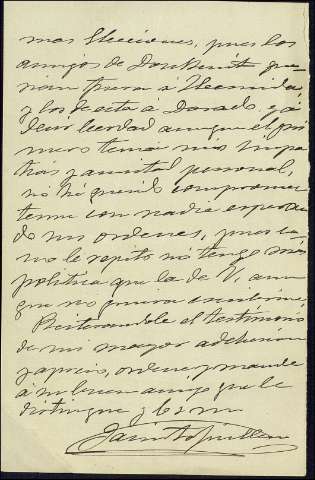 mas Elecciones, pues los
amigos de Don Benito que
rian traer á Hermida
y los de esta á Dorado, y á
decir verdad aunque el pri
mero tenia mis simpa
tias y amistad personal,
no hé querido comprome
terme con nadie esperan
do sus ordenes, pues co
mo le repito no tengo más
politica que la de V. aun
que no quiera escribirme.
Reiterandole el testimonio
de mi mayor adhesion
y aprecio, ordene y mande
á su buen amigo que le
distingue y b s m
Jacinto Guillen